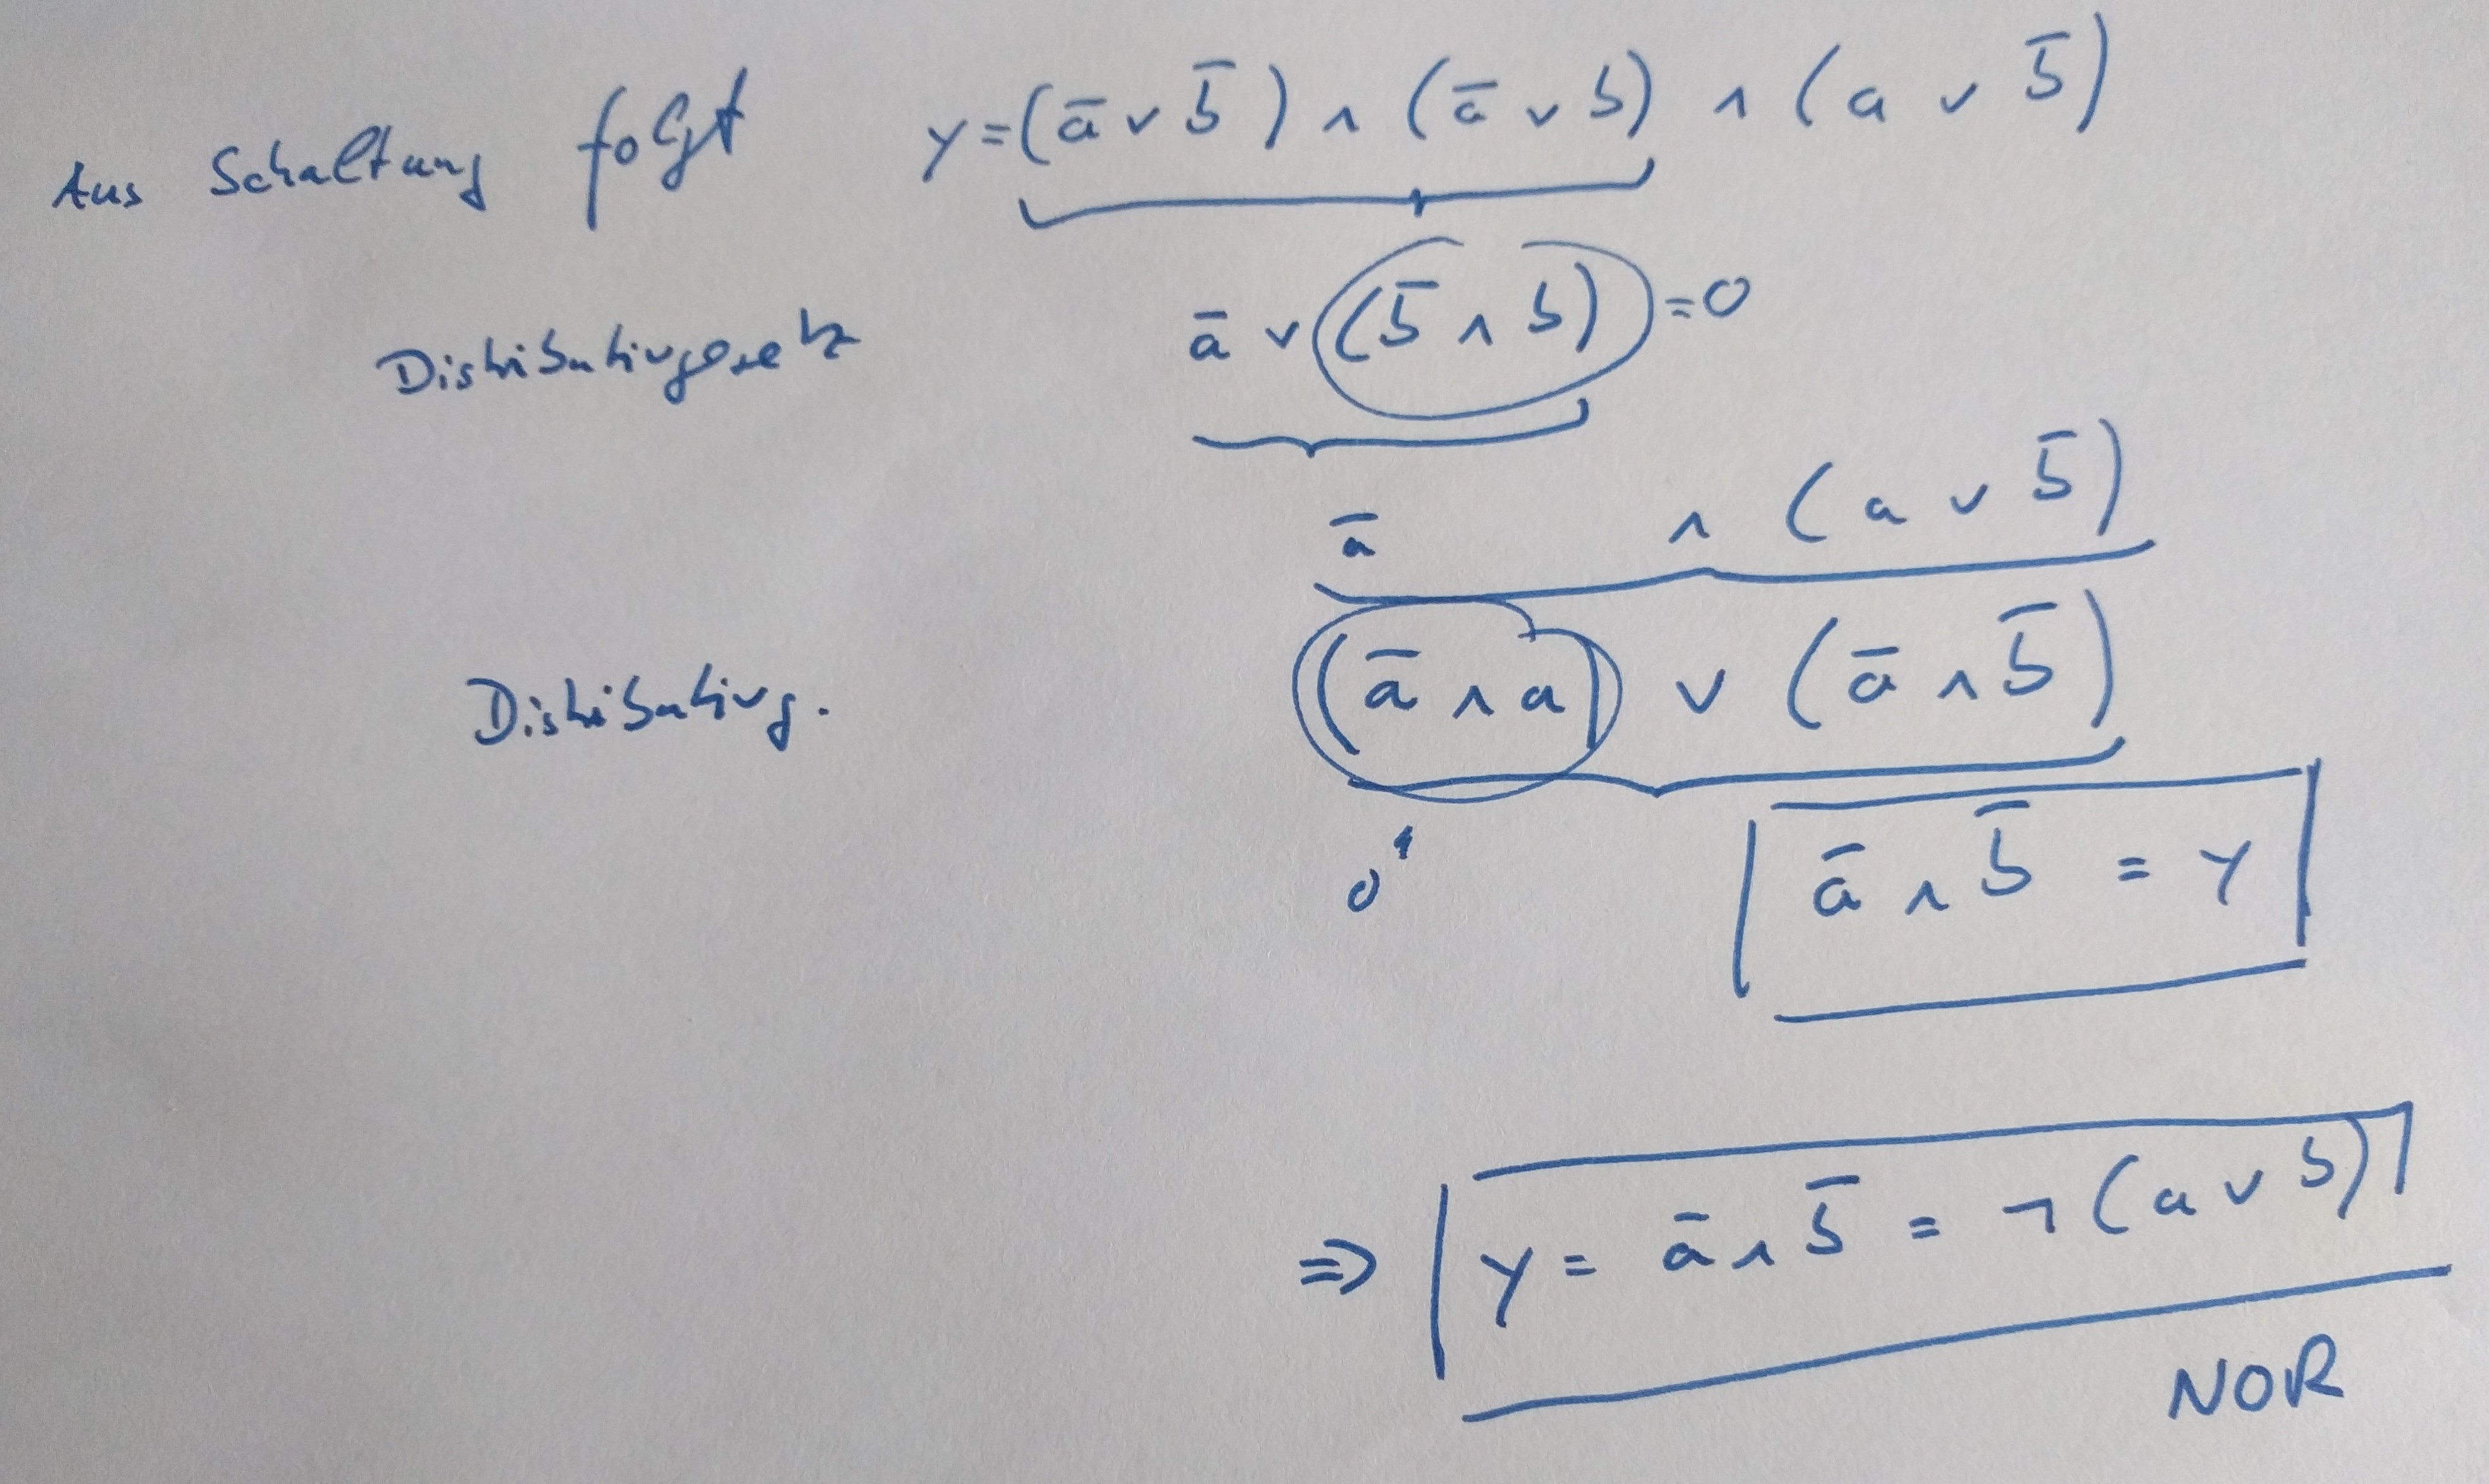 Aus Schaltung folgt y=(a̅ ∨ b̅) ∧ (a̅ ∨ b) ∧ (a ∨ b̅)
Distributivgesetz a̅ ∨ (b̅ ∧ b) =0
a̅ ∧ (a ∨ b̅)
Distributivg. (a̅ ∧ a) ∨ (a̅ ∧ b̅)
0
a̅ ∧ b̅ = y
⇒ y = a̅ ∧ b̅ = ¬(a ∨ b)
NOR